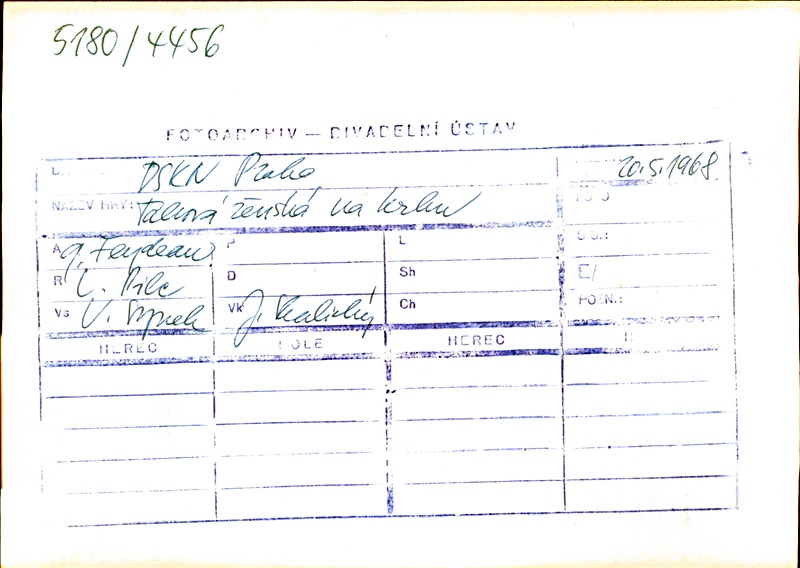 5180/4456
FOTOARCHIV — DIVADELNÍ ÚSTAV
DSKN Praha 20.5.1968
NÁZEV HRY: Taková ženská na krku
A G. Feydeau P L
R L. D Sh
Vs V. Vk J. Kalický Ch
POZN.:
HEREC ROLE HEREC